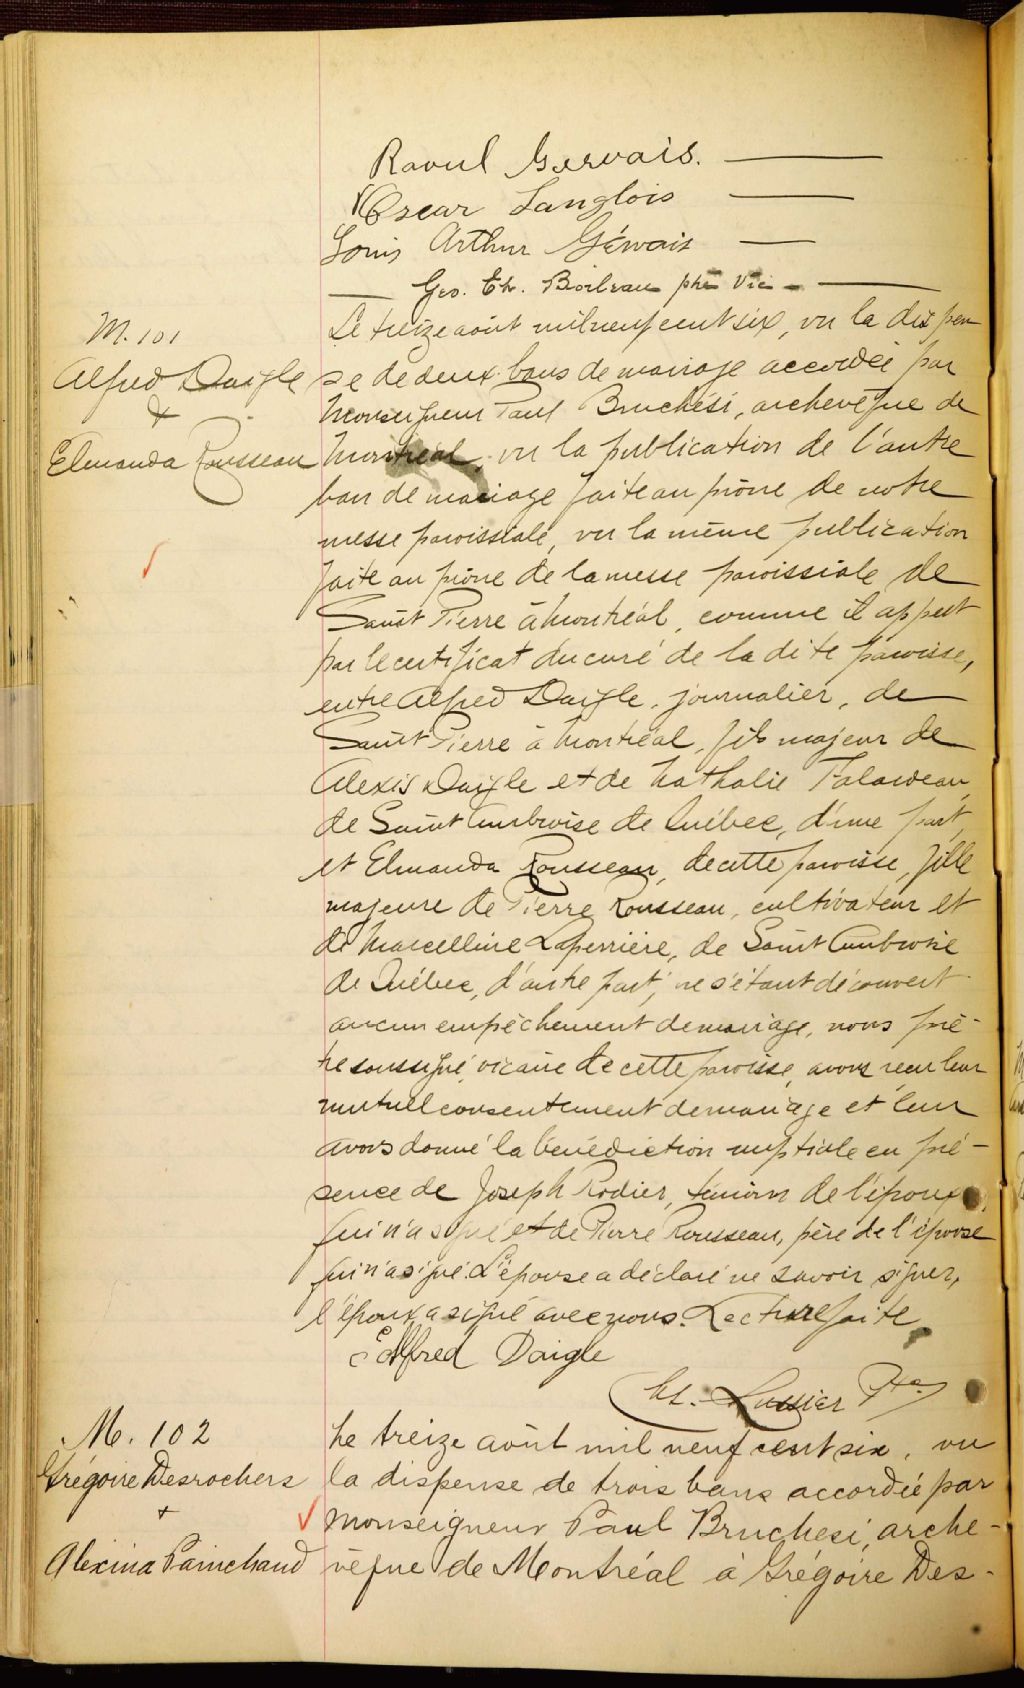 Raoul Gervais.
Oscar Langlois
Louis Arthur Gervais
Geo. Et. Boileau ptre Vic
M. 101
Alfred Daigle
&
Elmanda Rousseau
Le treize août mil neuf cent six, vu la dispen
se de deux bans de mariage accordée par
Monseigneur Paul Bruchési, archevêque de
Montréal, vu la publication de l'autre
ban de mariage faite au prône de notre
messe paroissiale, vu la même publication
faite au prône de la messe paroissiale de
Saint Pierre à Montréal, comme il appert
par le certificat du curé de la dite paroisse,
entre Alfred Daigle, journalier, de
Saint Pierre à Montréal, fils majeur de
Alexis Daigle et de Nathalie Falardeau,
de Saint Ambroise de Québec, d'une part,
et Elmanda Rousseau, de cette paroisse, fille
majeure de Pierre Rousseau, cultivateur et
de Marcelline Laperrière, de Saint Ambroise
de Québec, d'autre part, ne s'étant découvert
aucun empêchement de mariage, nous prê-
tre soussigné, vicaire de cette paroisse, avons reçu leur
mutuel consentement de mariage et leur
avons donné la bénédiction nuptiale en pré-
sence de Joseph Rodier, témoin de l'époux,
qui n'a signé, et de Pierre Rousseau, père de l'épouse
qui n'a signé. L'épouse a déclaré ne savoir signer,
l'époux a signé avec nous. Lecture faite
Alfred Daigle
Lussier Ptre
M. 102
Grégoire Desrochers
+
Alexina Painchaud
Le treize août mil neuf cent six, vu
la dispense de trois bans accordée par
Monseigneur Paul Bruchesi, arche-
vêque de Montréal à Grégoire Des-